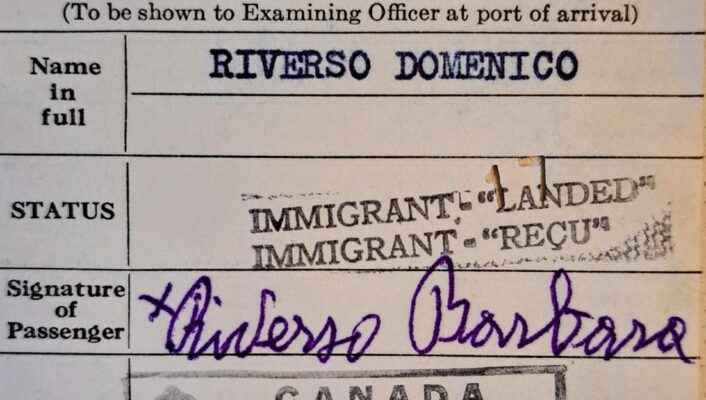 (To be shown to Examining Officer at port of arrival)
Name
in
full
RIVERSO DOMENICO
STATUS
17
IMMIGRANT - “LANDED”
IMMIGRANT - “REÇU”
Signature
of
Passenger
x Riverso Barbara
CANADA